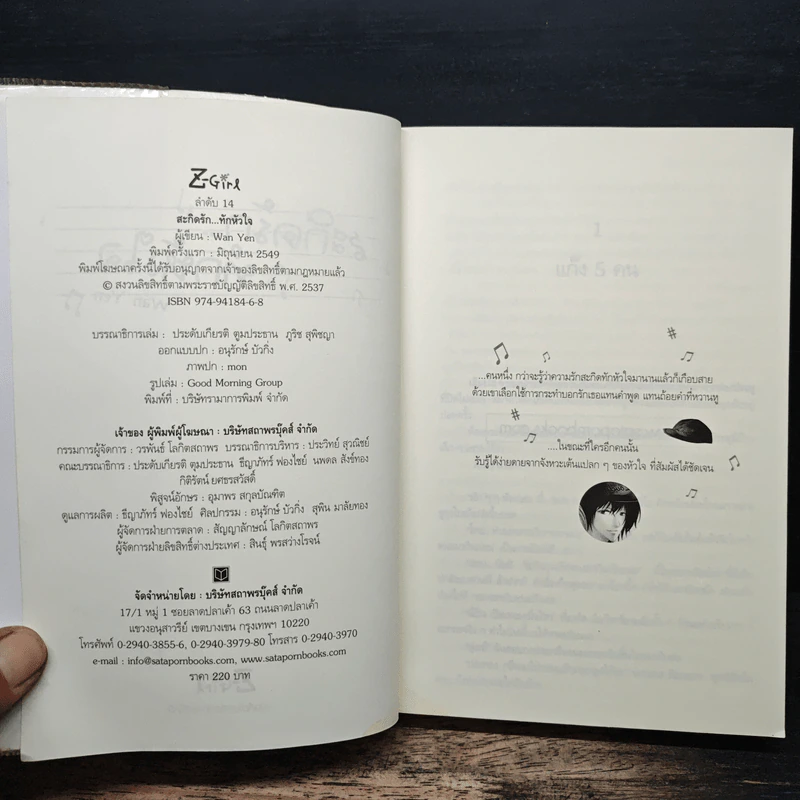 Z-Girl
ลำดับ 14
สะกิดรัก...ทักหัวใจ
ผู้เขียน : Wan Yen
พิมพ์ครั้งแรก : มิถุนายน 2549
พิมพ์โฆษณาครั้งนี้ได้รับอนุญาตจากเจ้าของลิขสิทธิ์ตามกฎหมายแล้ว
© สงวนลิขสิทธิ์ตามพระราชบัญญัติลิขสิทธิ์ พ.ศ. 2537
ISBN 974-94184-6-8
บรรณาธิการเล่ม : ประดับเกียรติ ตุมประธาน ภูริช สุพิชญา
ออกแบบปก : อนุรักษ์ บัวกิ่ง
ภาพปก : mon
รูปเล่ม : Good Morning Group
พิมพ์ที่ : บริษัทรามาการพิมพ์ จำกัด
เจ้าของ ผู้พิมพ์ผู้โฆษณา : บริษัทสถาพรบุ๊คส์ จำกัด
กรรมการผู้จัดการ : วรพันธ์ โลกิตสถาพร บรรณาธิการบริหาร : ประวิทย์ สุวณิชย์
คณะบรรณาธิการ : ประดับเกียรติ ตุมประธาน ธีญาภัทร์ ฟองไชย์ นพดล สังข์ทอง
กิติรัตน์ ยศธรสวัสดิ์
พิสูจน์อักษร : อุมาพร สกุลบัณฑิต
ดูแลการผลิต : ธีญาภัทร์ ฟองไชย์ ศิลปกรรม : อนุรักษ์ บัวกิ่ง สุพิน มาลัยทอง
ผู้จัดการฝ่ายการตลาด : สัญญาลักษณ์ โลกิตสถาพร
ผู้จัดการฝ่ายลิขสิทธิ์ต่างประเทศ : สินธุ์ พรสว่างโรจน์
จัดจำหน่ายโดย : บริษัทสถาพรบุ๊คส์ จำกัด
17/1 หมู่ 1 ซอยลาดปลาเค้า 63 ถนนลาดปลาเค้า
แขวงอนุสาวรีย์ เขตบางเขน กรุงเทพฯ 10220
โทรศัพท์ 0-2940-3855-6, 0-2940-3979-80 โทรสาร 0-2940-3970
e-mail : info@satapornbooks.com, www.satapornbooks.com
ราคา 220 บาท
...คนหนึ่ง กว่าจะรู้ว่าความรักสะกิดทักหัวใจมานานแล้วก็เกือบสาย
ด้วยเขาเลือกใช้การกระทำบอกรักเธอแทนคำพูด แทนถ้อยคำที่หวานหู
....ในขณะที่ใครอีกคนนั้น
รับรู้ได้ง่ายดายจากจังหวะเต้นแปลก ๆ ของหัวใจ ที่สัมผัสได้ชัดเจน